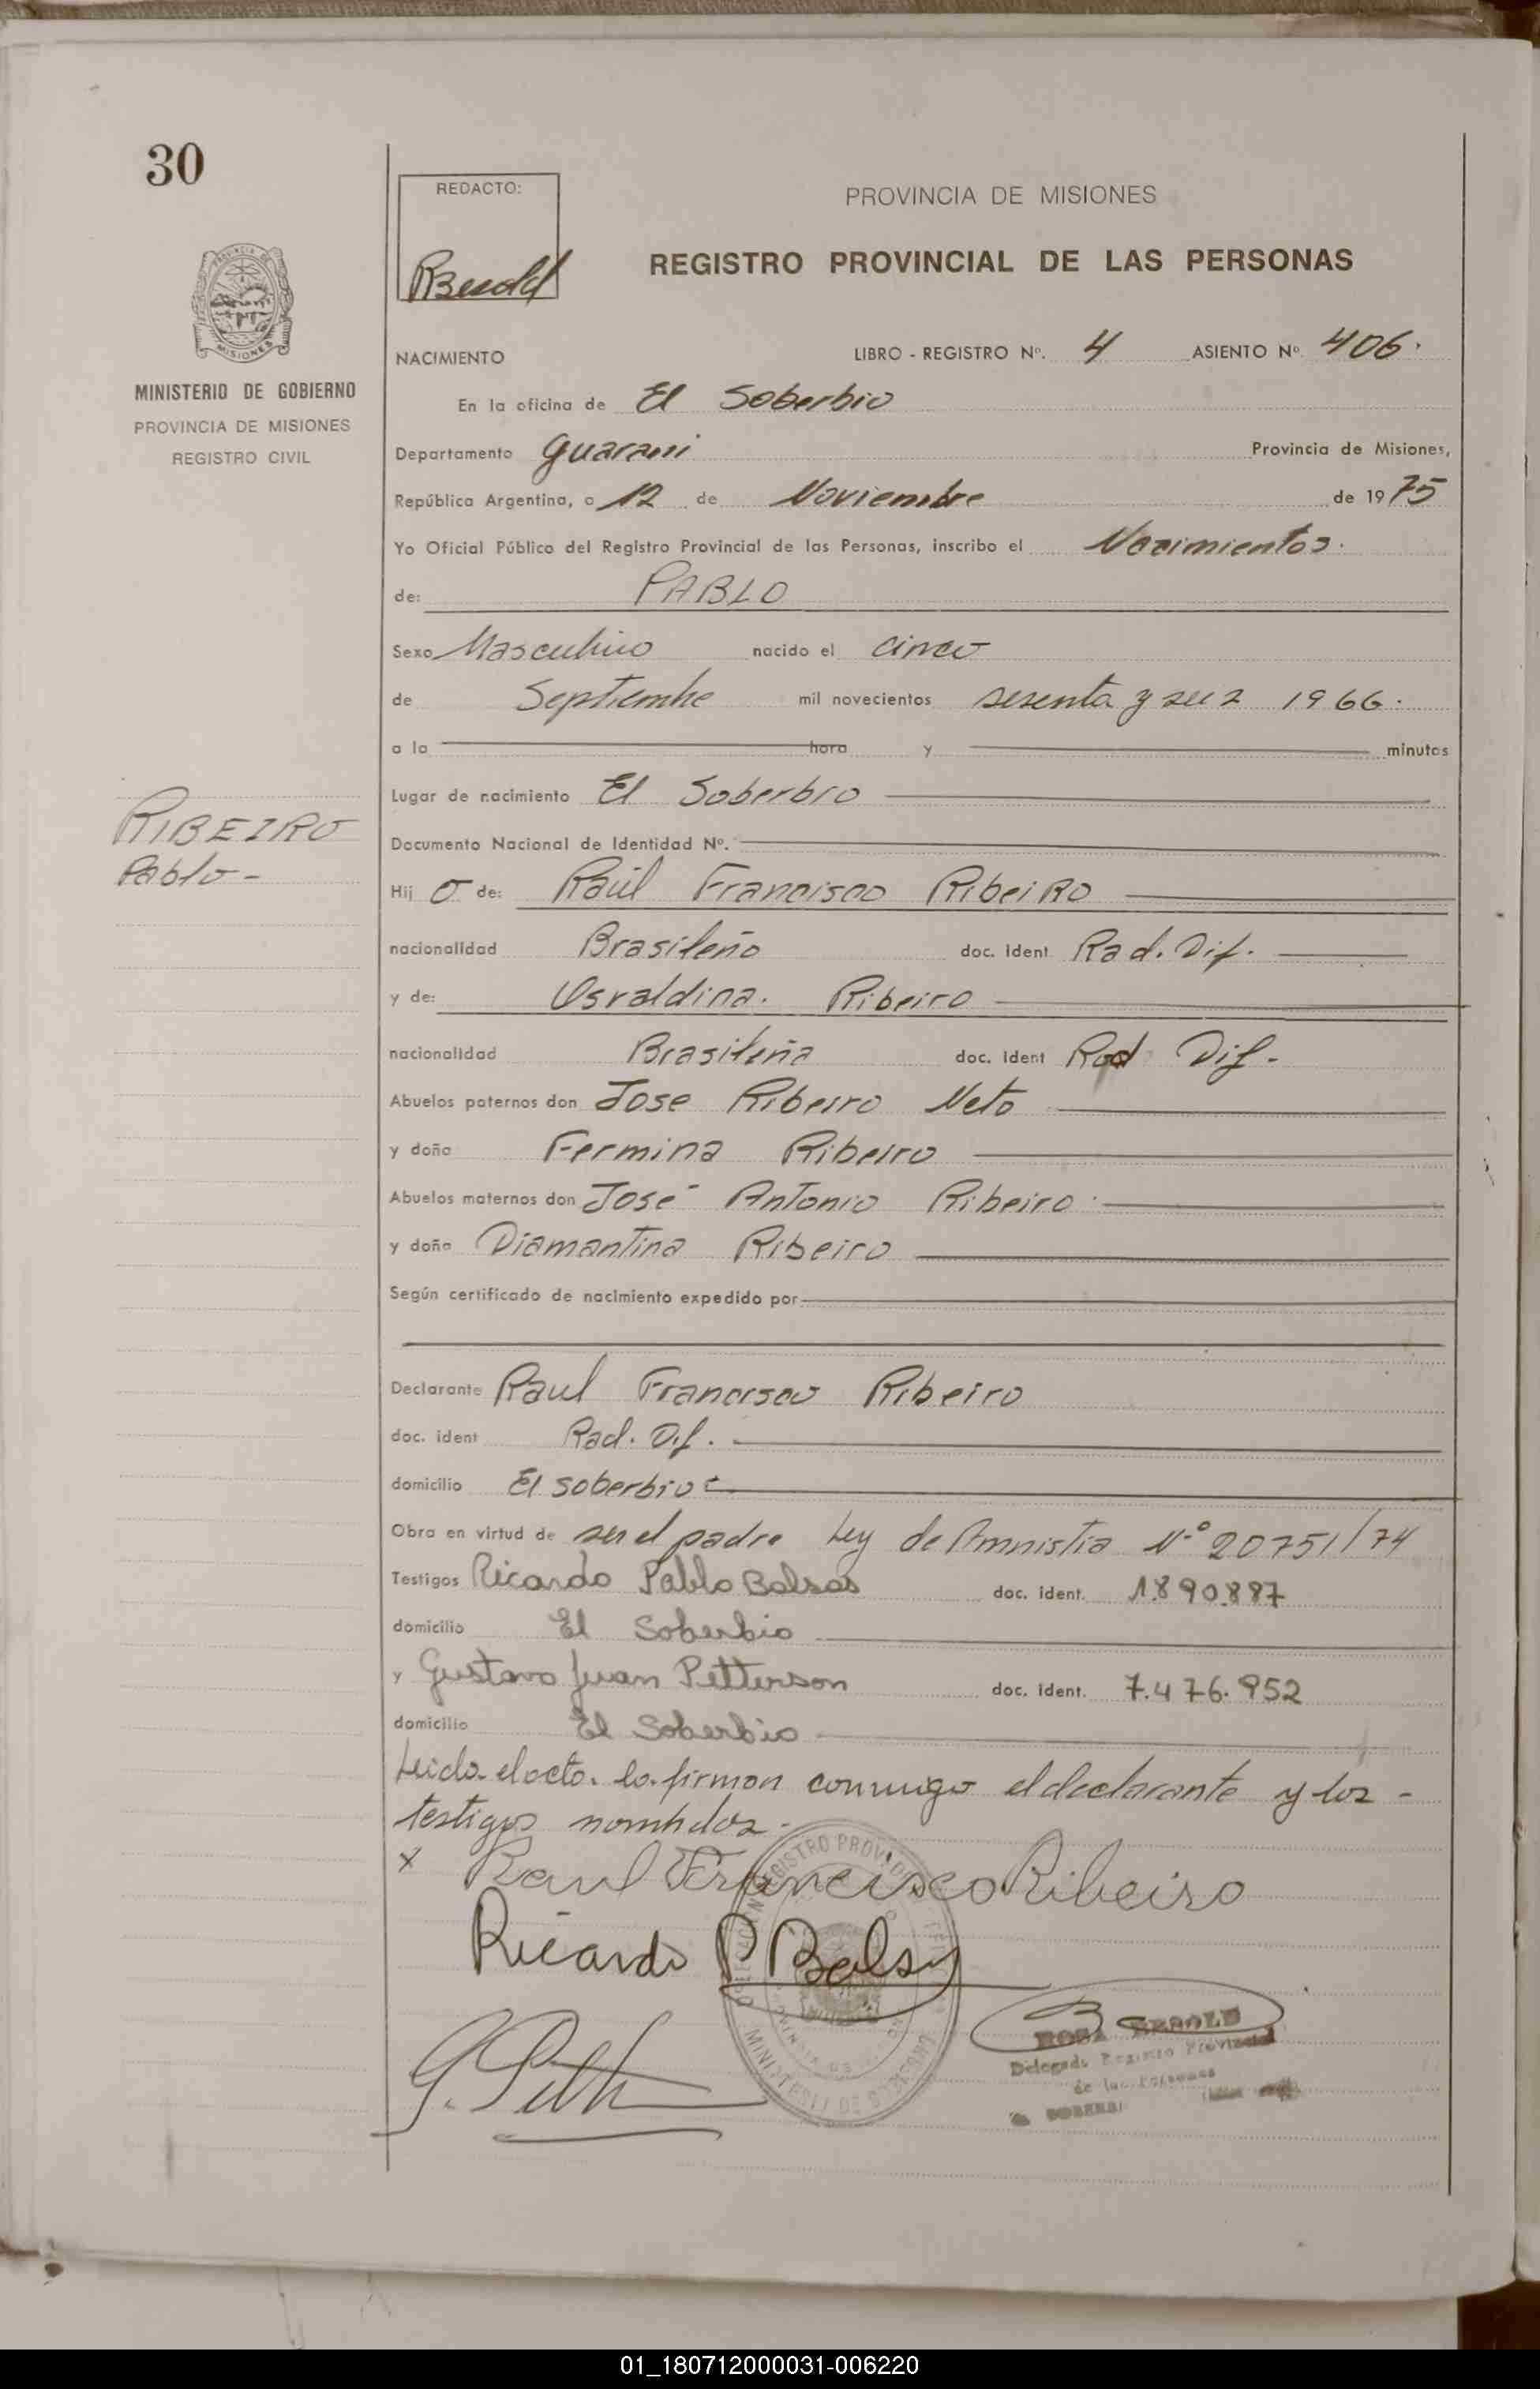 30
REDACTO:
PROVINCIA DE MISIONES
REGISTRO PROVINCIAL DE LAS PERSONAS
MISIONES
MINISTERIO DE GOBIERNO
PROVINCIA DE MISIONES
REGISTRO CIVIL
NACIMIENTO LIBRO - REGISTRO Nº. 4 ASIENTO Nº 406.
En la oficina de El Soberbio
Departamento Guarani Provincia de Misiones,
República Argentina, a 12 de Noviembre de 1975
Yo Oficial Público del Registro Provincial de las Personas, inscribo el Nacimientos.
de: PABLO
Sexo Masculino nacido el cinco
de Septiembre mil novecientos sesenta y seis 1966.
a la hora y minutos
Lugar de nacimiento El Soberbio
RIBEIRO
Pablo -
Documento Nacional de Identidad Nº.
Hij o de: Raúl Francisco Ribeiro
nacionalidad Brasileño doc. ident Rad. Dif.
y de: Osvaldina. Ribeiro
nacionalidad Brasileña doc. ident Rad Dif.
Abuelos paternos don Jose Ribeiro Neto
y doña Fermina Ribeiro
Abuelos maternos don José Antonio Ribeiro
y doña Diamantina Ribeiro
Según certificado de nacimiento expedido por
Declarante Raul Francisco Ribeiro
doc. ident Rad. Dif.
domicilio El soberbio
Obra en virtud de ser el padre Ley de Amnistia Nº 20751/74
Testigos Ricardo Pablo Balsas doc. ident. 1.890.887
domicilio El Soberbio
y Gustavo Juan Petterson doc. ident. 7.476.952
domicilio El Soberbio
Leida el acta. la firman conmigo el declarante y los -
testigos nombdos.
x Raul Francisco Ribeiro
Ricardo P Bals
Delegada Registro Provincial
de las Personas
01_180712000031-006220